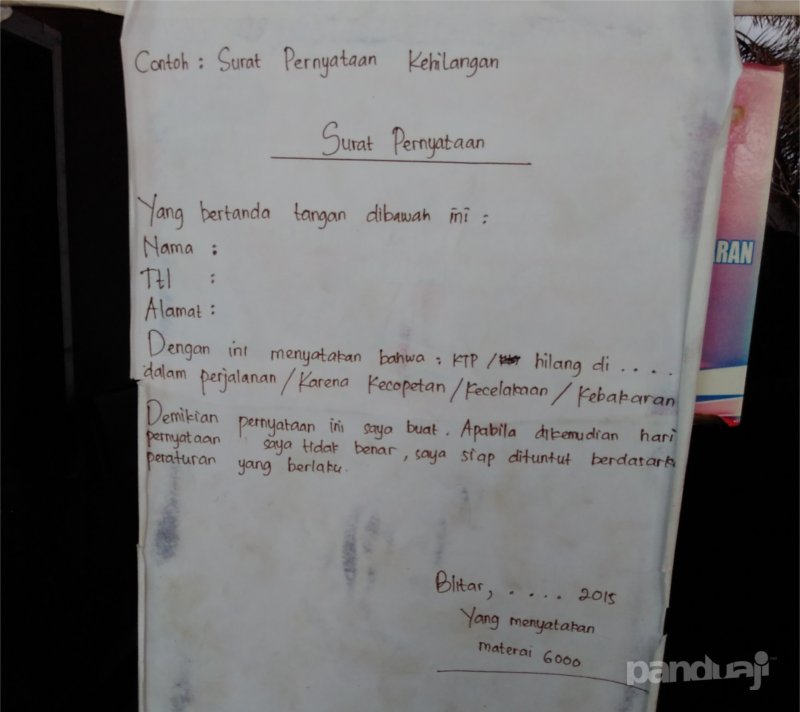 Contoh : Surat Pernyataan Kehilangan
Surat Pernyataan
Yang bertanda tangan dibawah ini :
Nama :
Ttl :
Alamat :
Dengan ini menyatakan bahwa : KTP / hilang di . . . .
dalam perjalanan / Karena Kecopetan / Kecelakaan / Kebakaran
Demikian pernyataan ini saya buat. Apabila dikemudian hari
pernyataan saya tidak benar, saya siap dituntut berdasark
peraturan yang berlaku.
Blitar, . . . . 2015
Yang menyatakan
materai 6000
RAN
panduaji